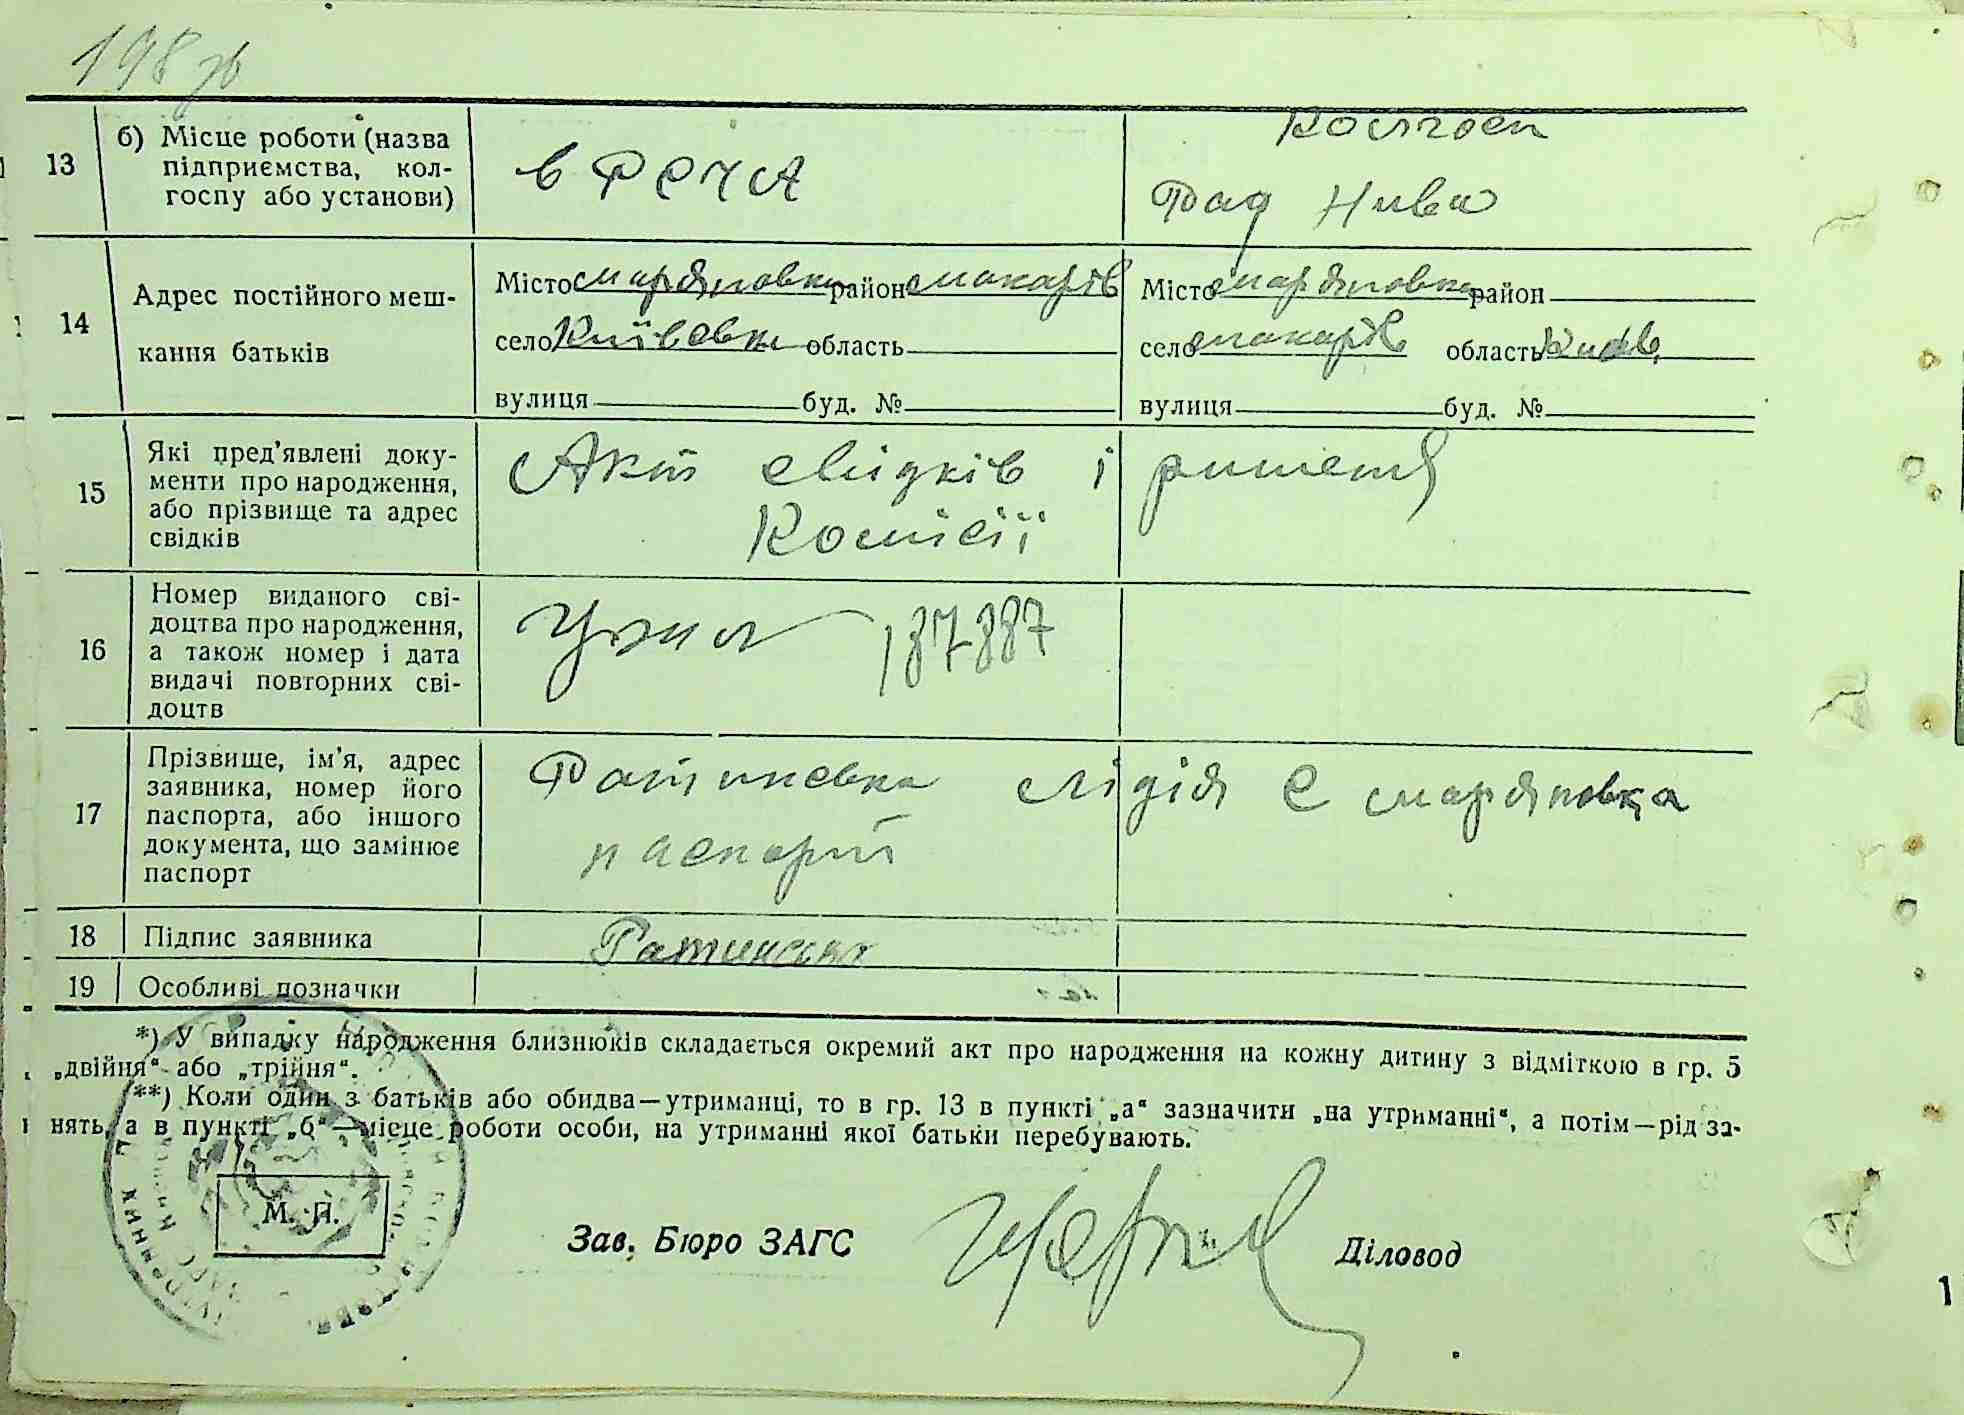 198 зв
13 б) Місце роботи (назва підприємства, кол-госпу або установи)
в РСЧА
Колгосп
Рад Нива
14 Адрес постійного меш-
кання батьків
Місто Мар'яновка район Макарів
село Київська область
вулиця буд. №
Місто Мар'яновка район
село Макарів область Київ
вулиця буд. №
15 Які пред'явлені доку-
менти про народження,
або прізвище та адрес
свідків
Акт свідків і рішення
Комісії
16 Номер виданого сві-
доцтва про народження,
а також номер і дата
видачі повторних сві-
доцтв
187387
17 Прізвище, ім'я, адрес
заявника, номер його
паспорта, або іншого
документа, що замінює
паспорт
Ратинська Лідія С Мар'яновка
паспорт
18 Підпис заявника
Ратинська
19 Особливі позначки
*) У випадку народження близнюків складається окремий акт про народження на кожну дитину з відміткою в гр. 5
„двійня“ або „трійня“.
**) Коли один з батьків або обидва—утриманці, то в гр. 13 в пункті „а“ зазначити „на утриманні“, а потім—рід за-
нять, а в пункті „б“—місце роботи особи, на утриманні якої батьки перебувають.
М. П.
Зав. Бюро ЗАГС
Діловод
1